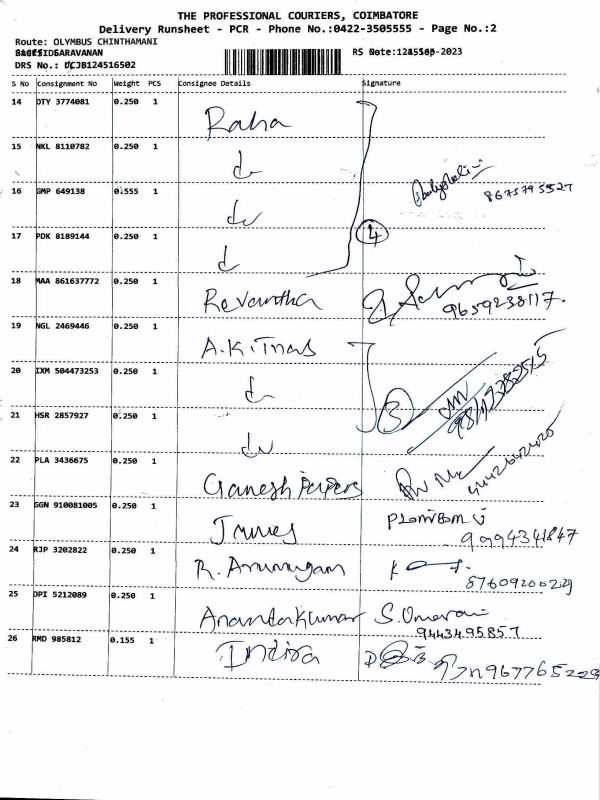 THE PROFESSIONAL COURIERS, COIMBATORE
Delivery Runsheet - PCR - Phone No.:0422-3505555 - Page No.:2
Route: OLYMBUS CHINTHAMANI
SARAVANAN
DRS No.: 124516502
RS Date: -2023
S No Consignment No Weight PCS Consignee Details Signature
14 OTY 3774081 0.250 1 Raha
15 NKL 8110782 0.250 1
16 GMP 649138 0.555 1 8675795527
17 PDK 8189144 0.250 1 4
18 MAA 861637772 0.250 1 Revantha 9659238117.
19 NGL 2469446 0.250 1 A.K.
20 IXM 504473253 0.250 1
21 HSR 2857927 0.250 1 3
22 PLA 3436675 0.250 1 Ganesh Papers
23 GGN 910081005 0.250 1 9994341847
24 RJP 3202822 0.250 1 R. Arumugam 8760920029
25 DPI 5212089 0.250 1 Anandakumar S.
9443495857
26 RMD 985812 0.155 1 Indira